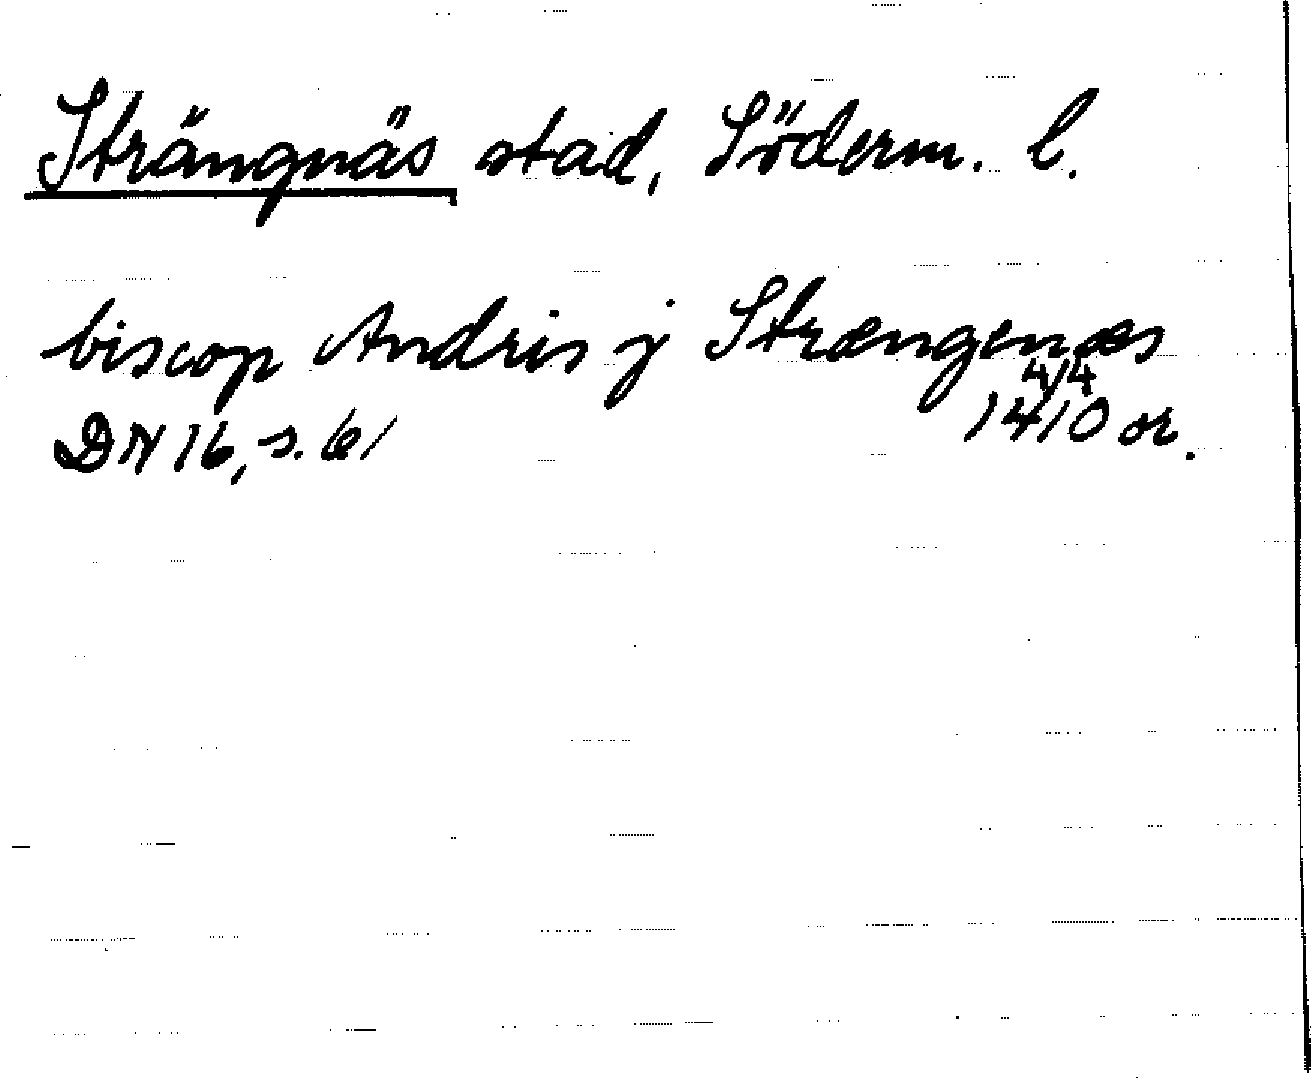 Strängnäs stad, Söderm. l.
biscop Andris j Strængenæs
4/4
DN 16, s. 61 1410 or.